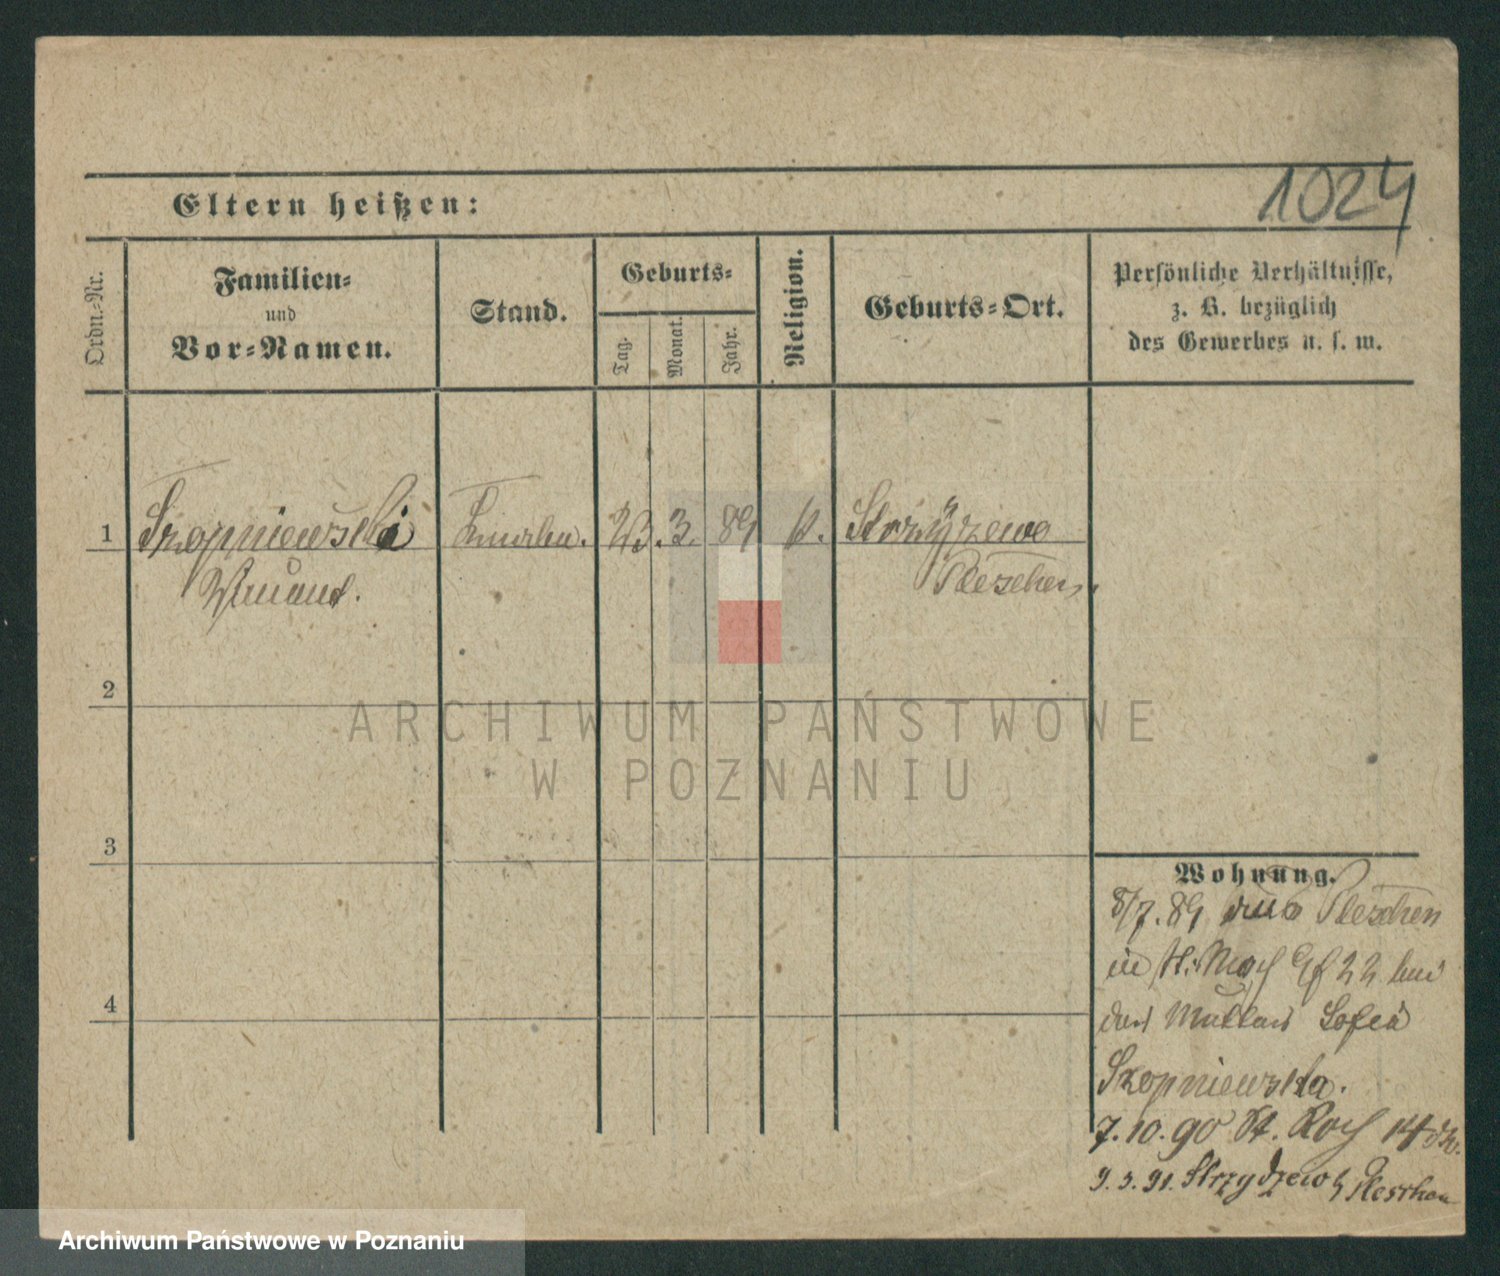 1024
Eltern heißen:
Ordn.-Nr.
Familien-
und
Vor-Namen.
Stand.
Geburts-
Tag.
Monat.
Jahr.
Religion.
Geburts-Ort.
Persönliche Verhältnisse,
z. B. bezüglich
des Gewerbes u. s. w.
1 Szopniewski 23. 3. 89 k. Strzyzewo
Pleschen.
2
3
4
Wohnung.
8/7. 89 aus Pleschen
in 22 bei
der Mutter Sofia
Szopniewska.
7. 10. 90 St. Roch 14
9. 3. 91. Strzydzewo Pleschen
ARCHIWUM PAŃSTWOWE
W POZNANIU
Archiwum Państwowe w Poznaniu